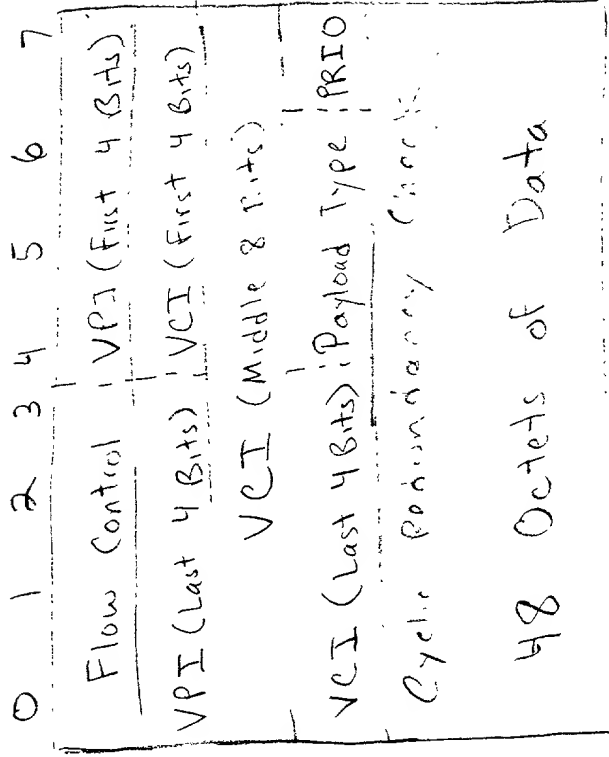 0 1 2 3 4 5 6 7
Flow Control VPI (First 4 Bits)
VPI (Last 4 Bits) VCI (First 4 Bits)
VCI (Middle 8 Bits)
VCI (Last 4 Bits) Payload Type PRIO
Cyclic Redundancy Check
48 Octets of Data